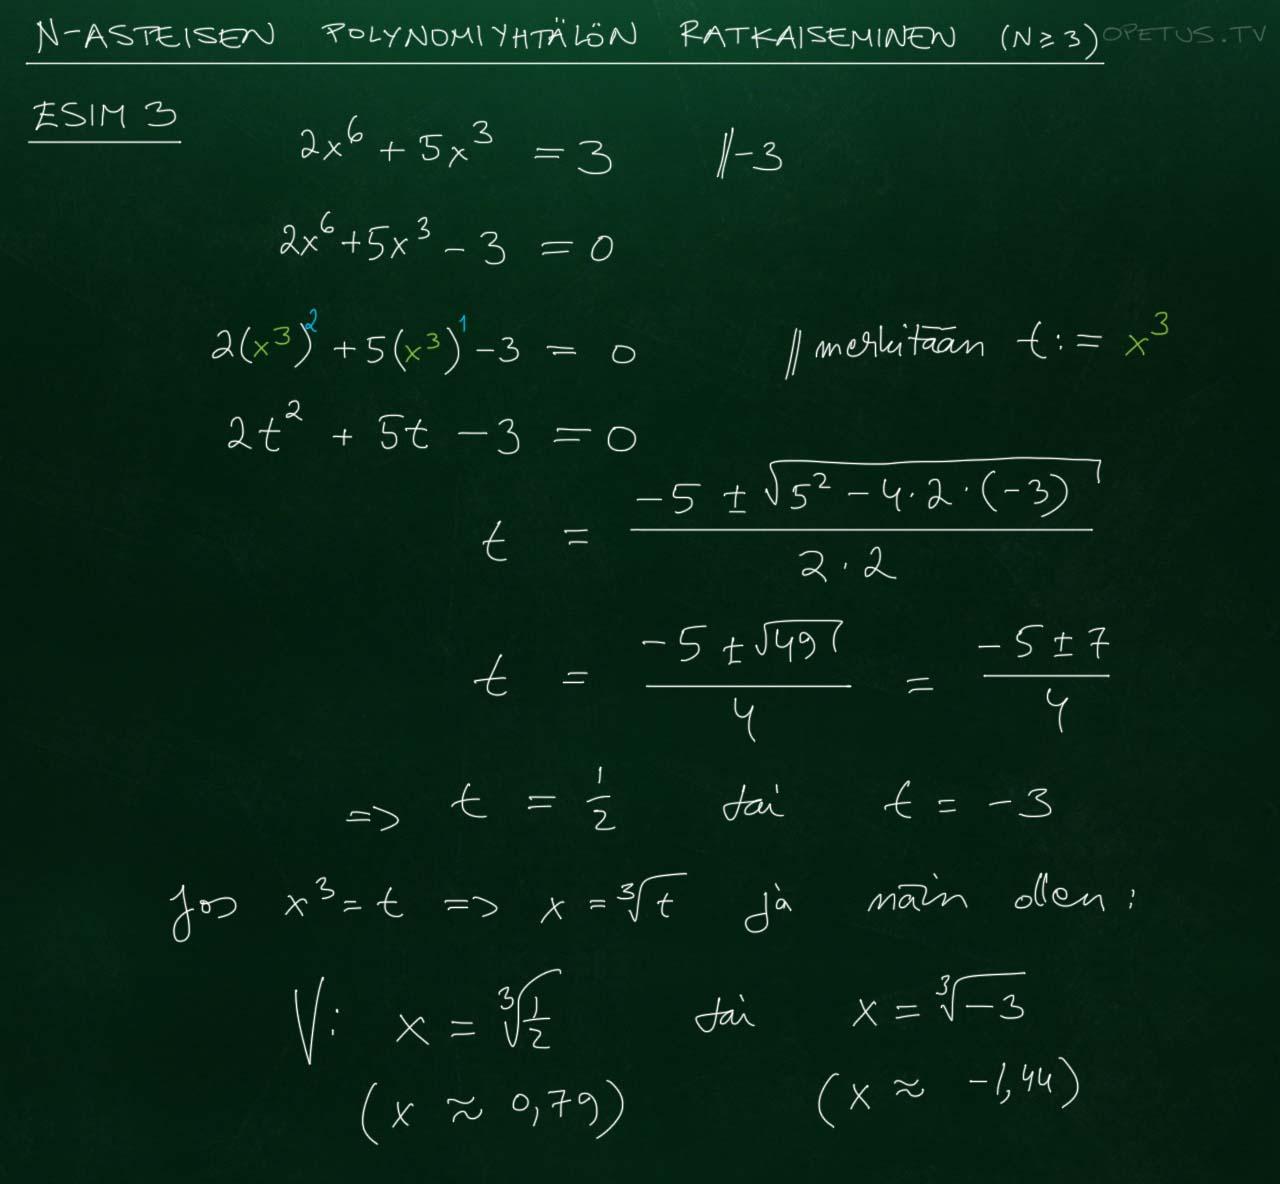 N-ASTEISEN POLYNOMIYHTÄLÖN RATKAISEMINEN (N ≥ 3) OPETUS.TV
ESIM 3
2x⁶ + 5x³ = 3 //-3
2x⁶ + 5x³ - 3 = 0
2(x³)² + 5(x³)¹ - 3 = 0 // merkitään t := x³
2t² + 5t - 3 = 0
t = (-5 ± √(5² - 4·2·(-3))) / (2·2)
t = (-5 ± √49) / 4 = (-5 ± 7) / 4
=> t = 1/2 tai t = -3
Jos x³ = t => x = ³√t ja näin ollen:
V: x = ³√(1/2) tai x = ³√-3
(x ≈ 0,79) (x ≈ -1,44)